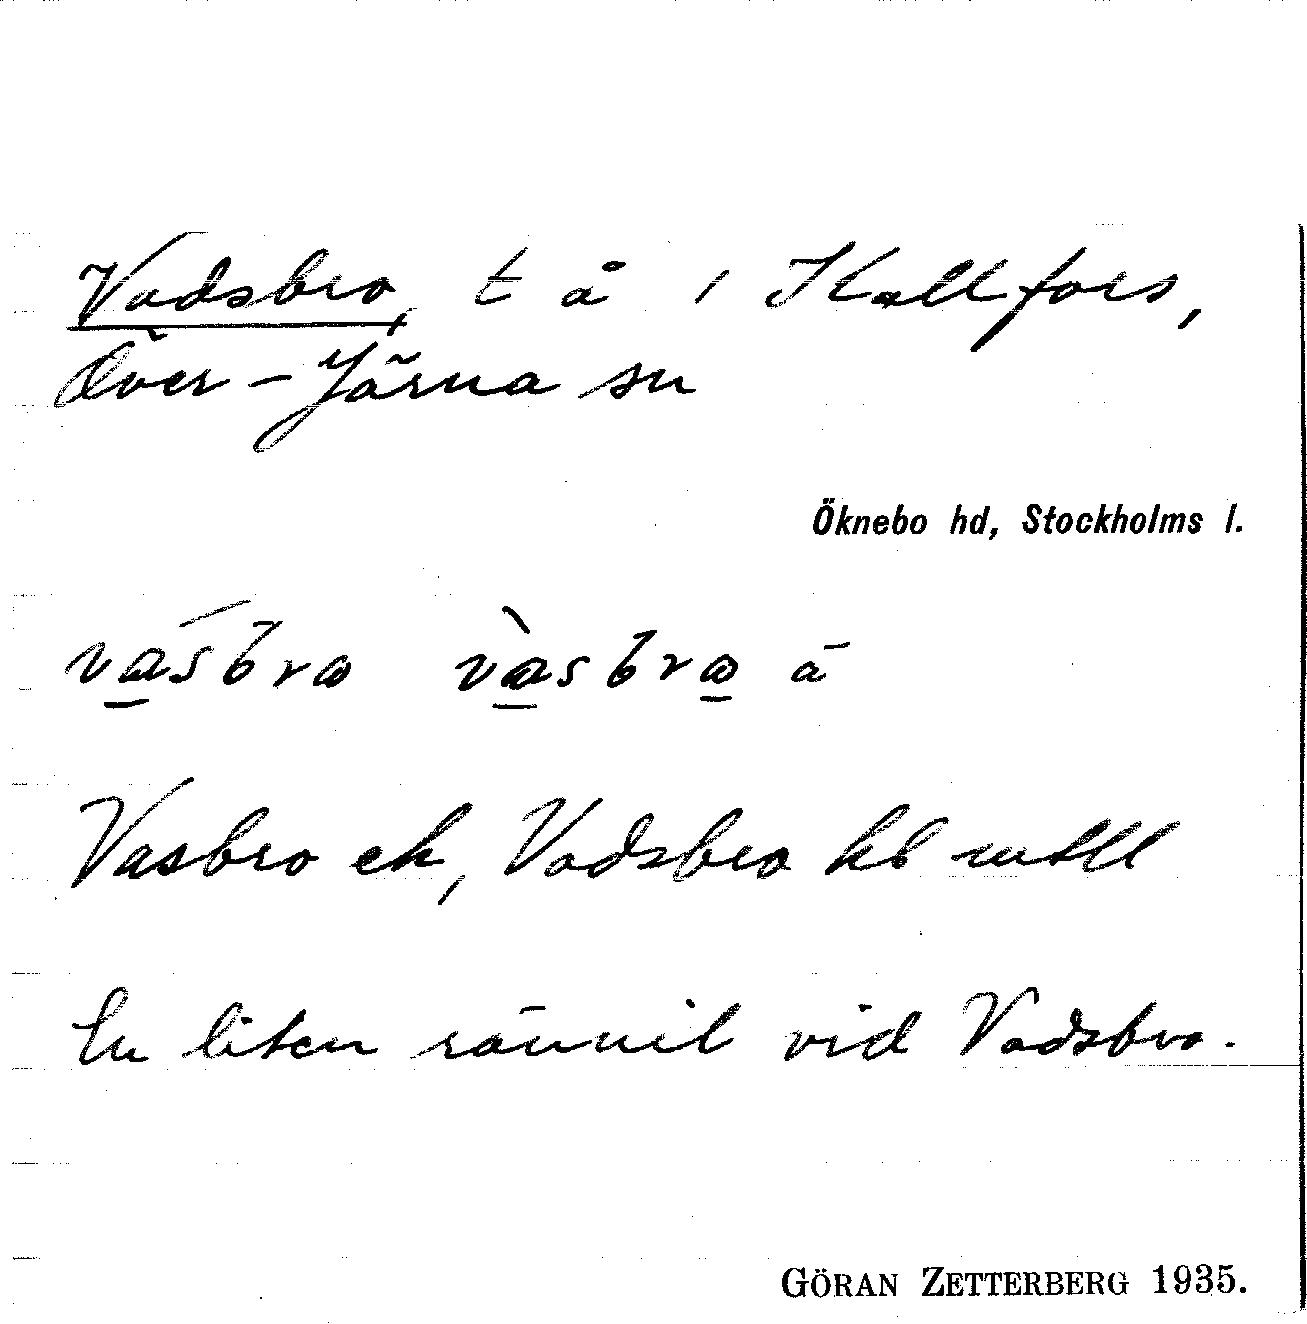 Vadsbro, t å i Kallfors,
Över-Järna sn
Öknebo hd, Stockholms l.
vásbrω vàsbrω å
Vasbro ek, Vadsbro hb mtll
En liten rännil vid Vadsbro.
GÖRAN ZETTERBERG 1935.